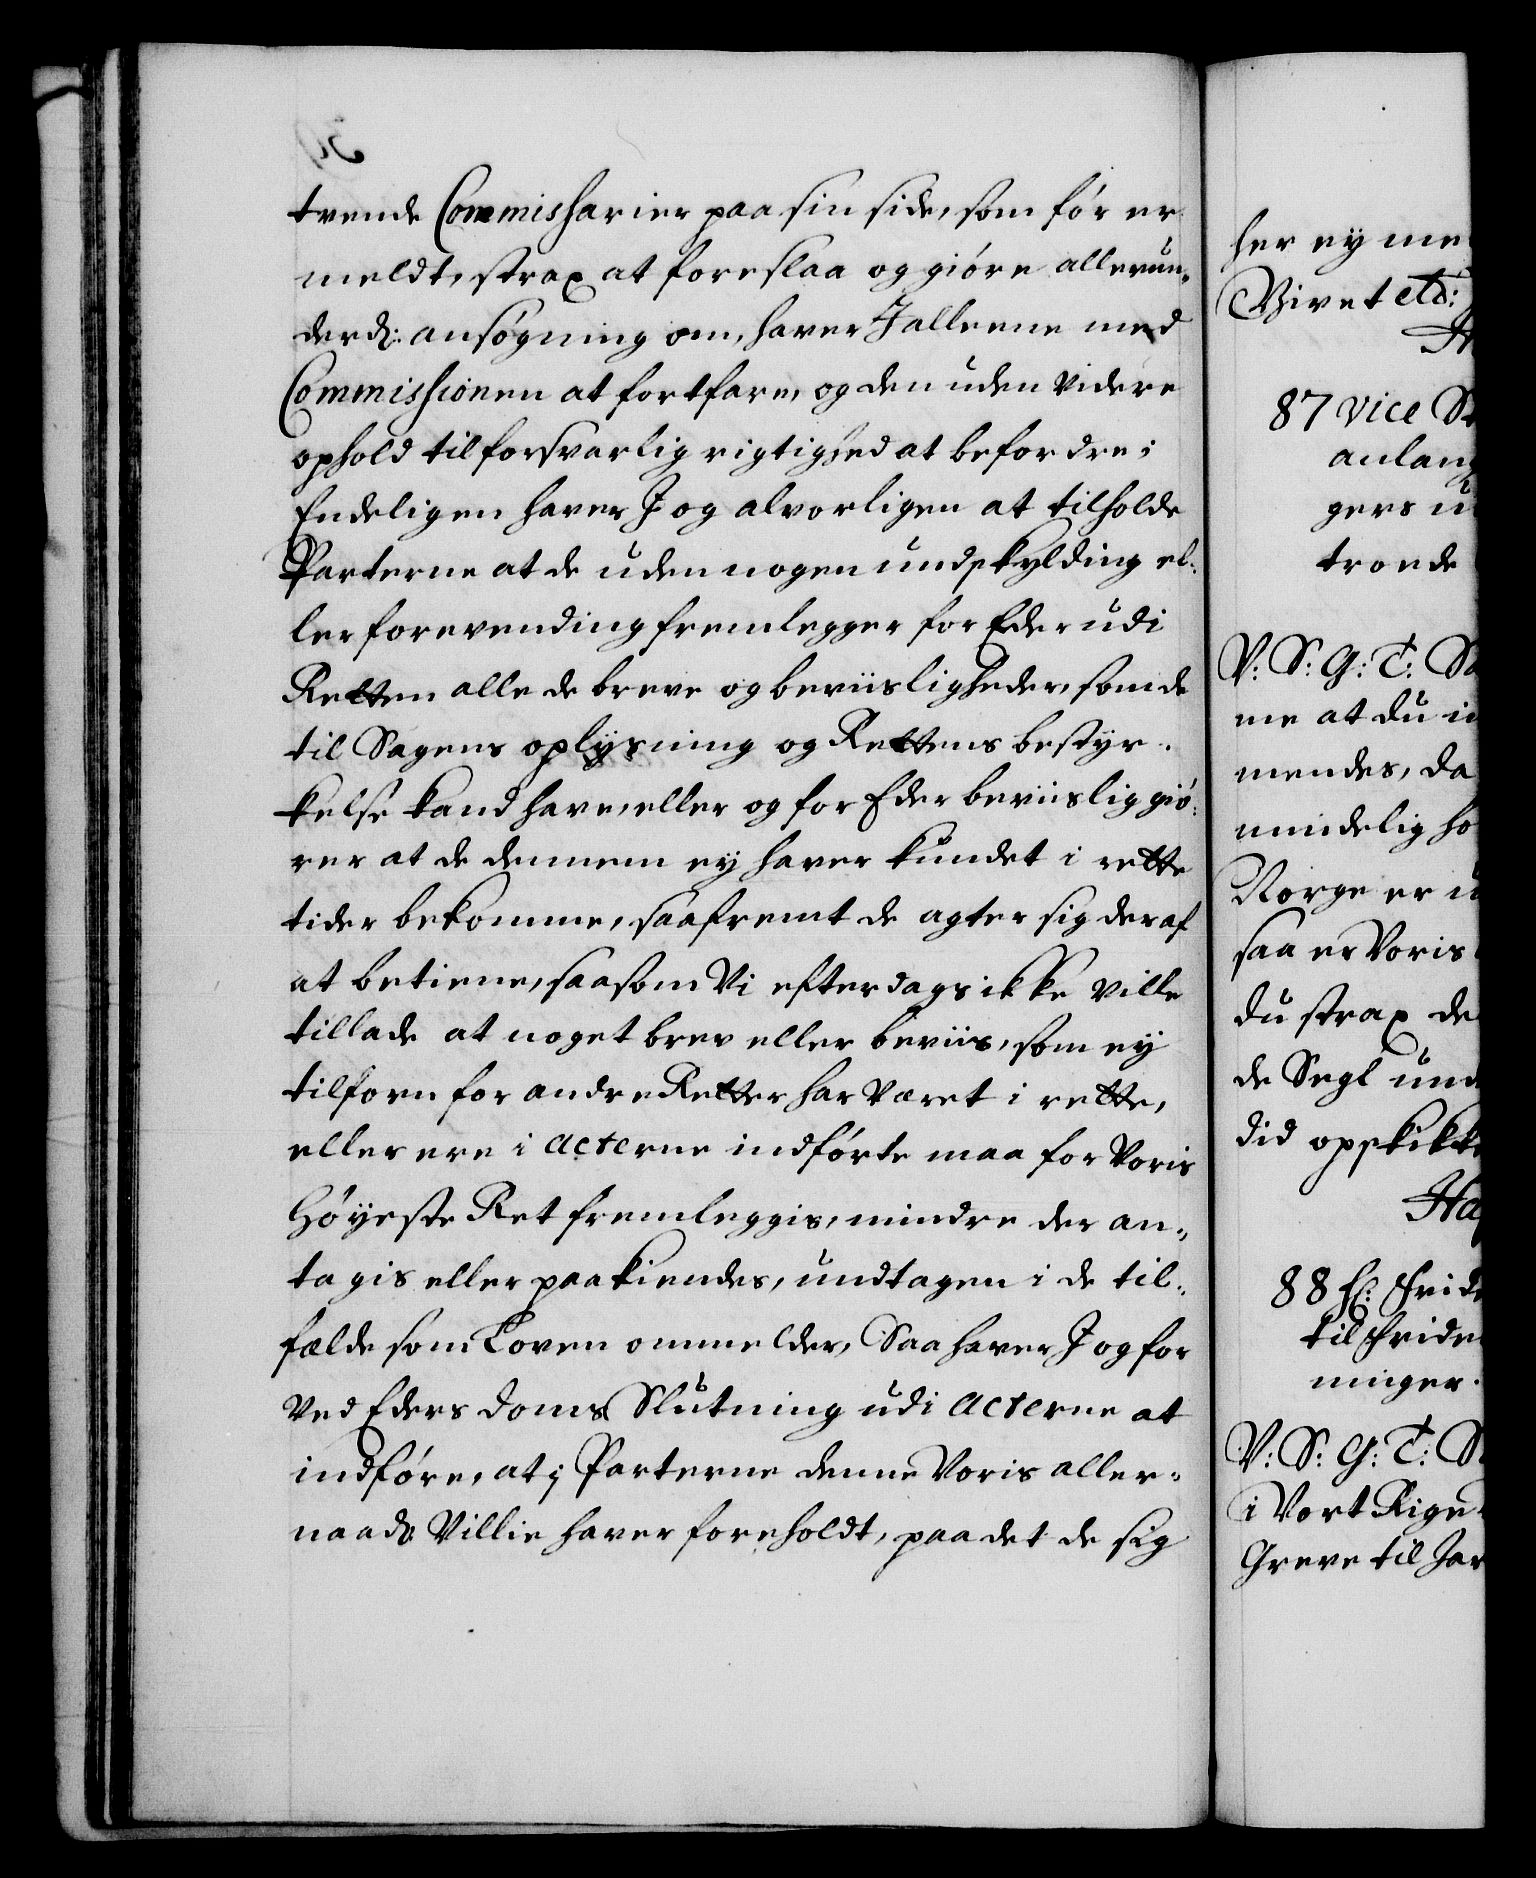 trende Commissarier paa sin side, som før er
meldt, strax at foreslaa og giøre allerun„
derd: ansøgning om, haver I alleene med
Commissionen at fortfare, og den uden videre
ophold til forsvarlig rigtighed at befordre;
Endeligen haver I og alvorligen at tilholde
Parterne at de uden nogen undskylding el„
ler forevending fremlegger for Eder udi
Retten alle de breve og beviisligheder, som de
til Sagens oplysning og Rettens bestyr„
kelse kand have, eller og for Eder beviislig giø„
rer at de dennem ey haver kundet i rette
tider bekomme, saafremt de agter sig deraf
at betiene, saasom Vi efterdags ikke ville
tillade at noget brev eller beviis, som ey
tilforn for andre Retter har været i rette,
eller ere i acterne indførte maa for Voris
Høyeste Ret fremleggis, mindre der an„
tagis eller paakiendes, undtagen i de til„
fælde som Loven ommelder, Saa haver I og for
ved Eders doms Slutning udi acterne at
indføre, at j Parterne denne Voris aller„
naads Villie haver foreholdt, paa det de sig
her ey me
Givet etc:
87 Vice St
anlang
gers u
tronde
V: S: G: T: Sa
me at du i
mendes, da
mindelig ho
Norge er u
saa er Voris
du strax de
de Segl und
did opskikk
Ha
88 H: Frid
til Fride
minger.
V: S: G: T: S
i Vort Rige
Greve til Jar